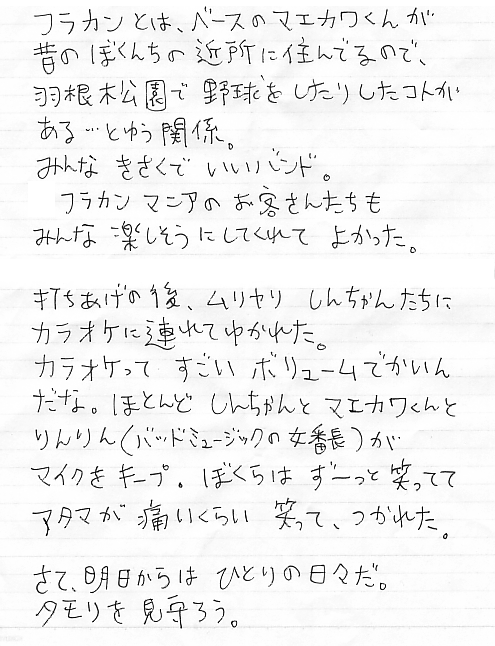 フラカンとは、ベースのマエカワくんが
昔のぼくんちの近所に住んでるので、
羽根木公園で野球をしたりしたコトが
ある…とゆう関係。
みんな きさくで いいバンド。
フラカン マニアの お客さんたちも
みんな 楽しそうにしてくれて よかった。
打ちあげの後、ムリヤリ しんちゃんたちに
カラオケに連れてゆかれた。
カラオケって すごい ボリュームでかいん
だな。ほとんど しんちゃんと マエカワくんと
りんりん(バッドミュージックの女番長)が
マイクをキープ。ぼくらは ずーっと笑ってて
アタマが 痛いくらい 笑って、つかれた。
さて、明日からは ひとりの日々だ。
タモリを 見守ろう。